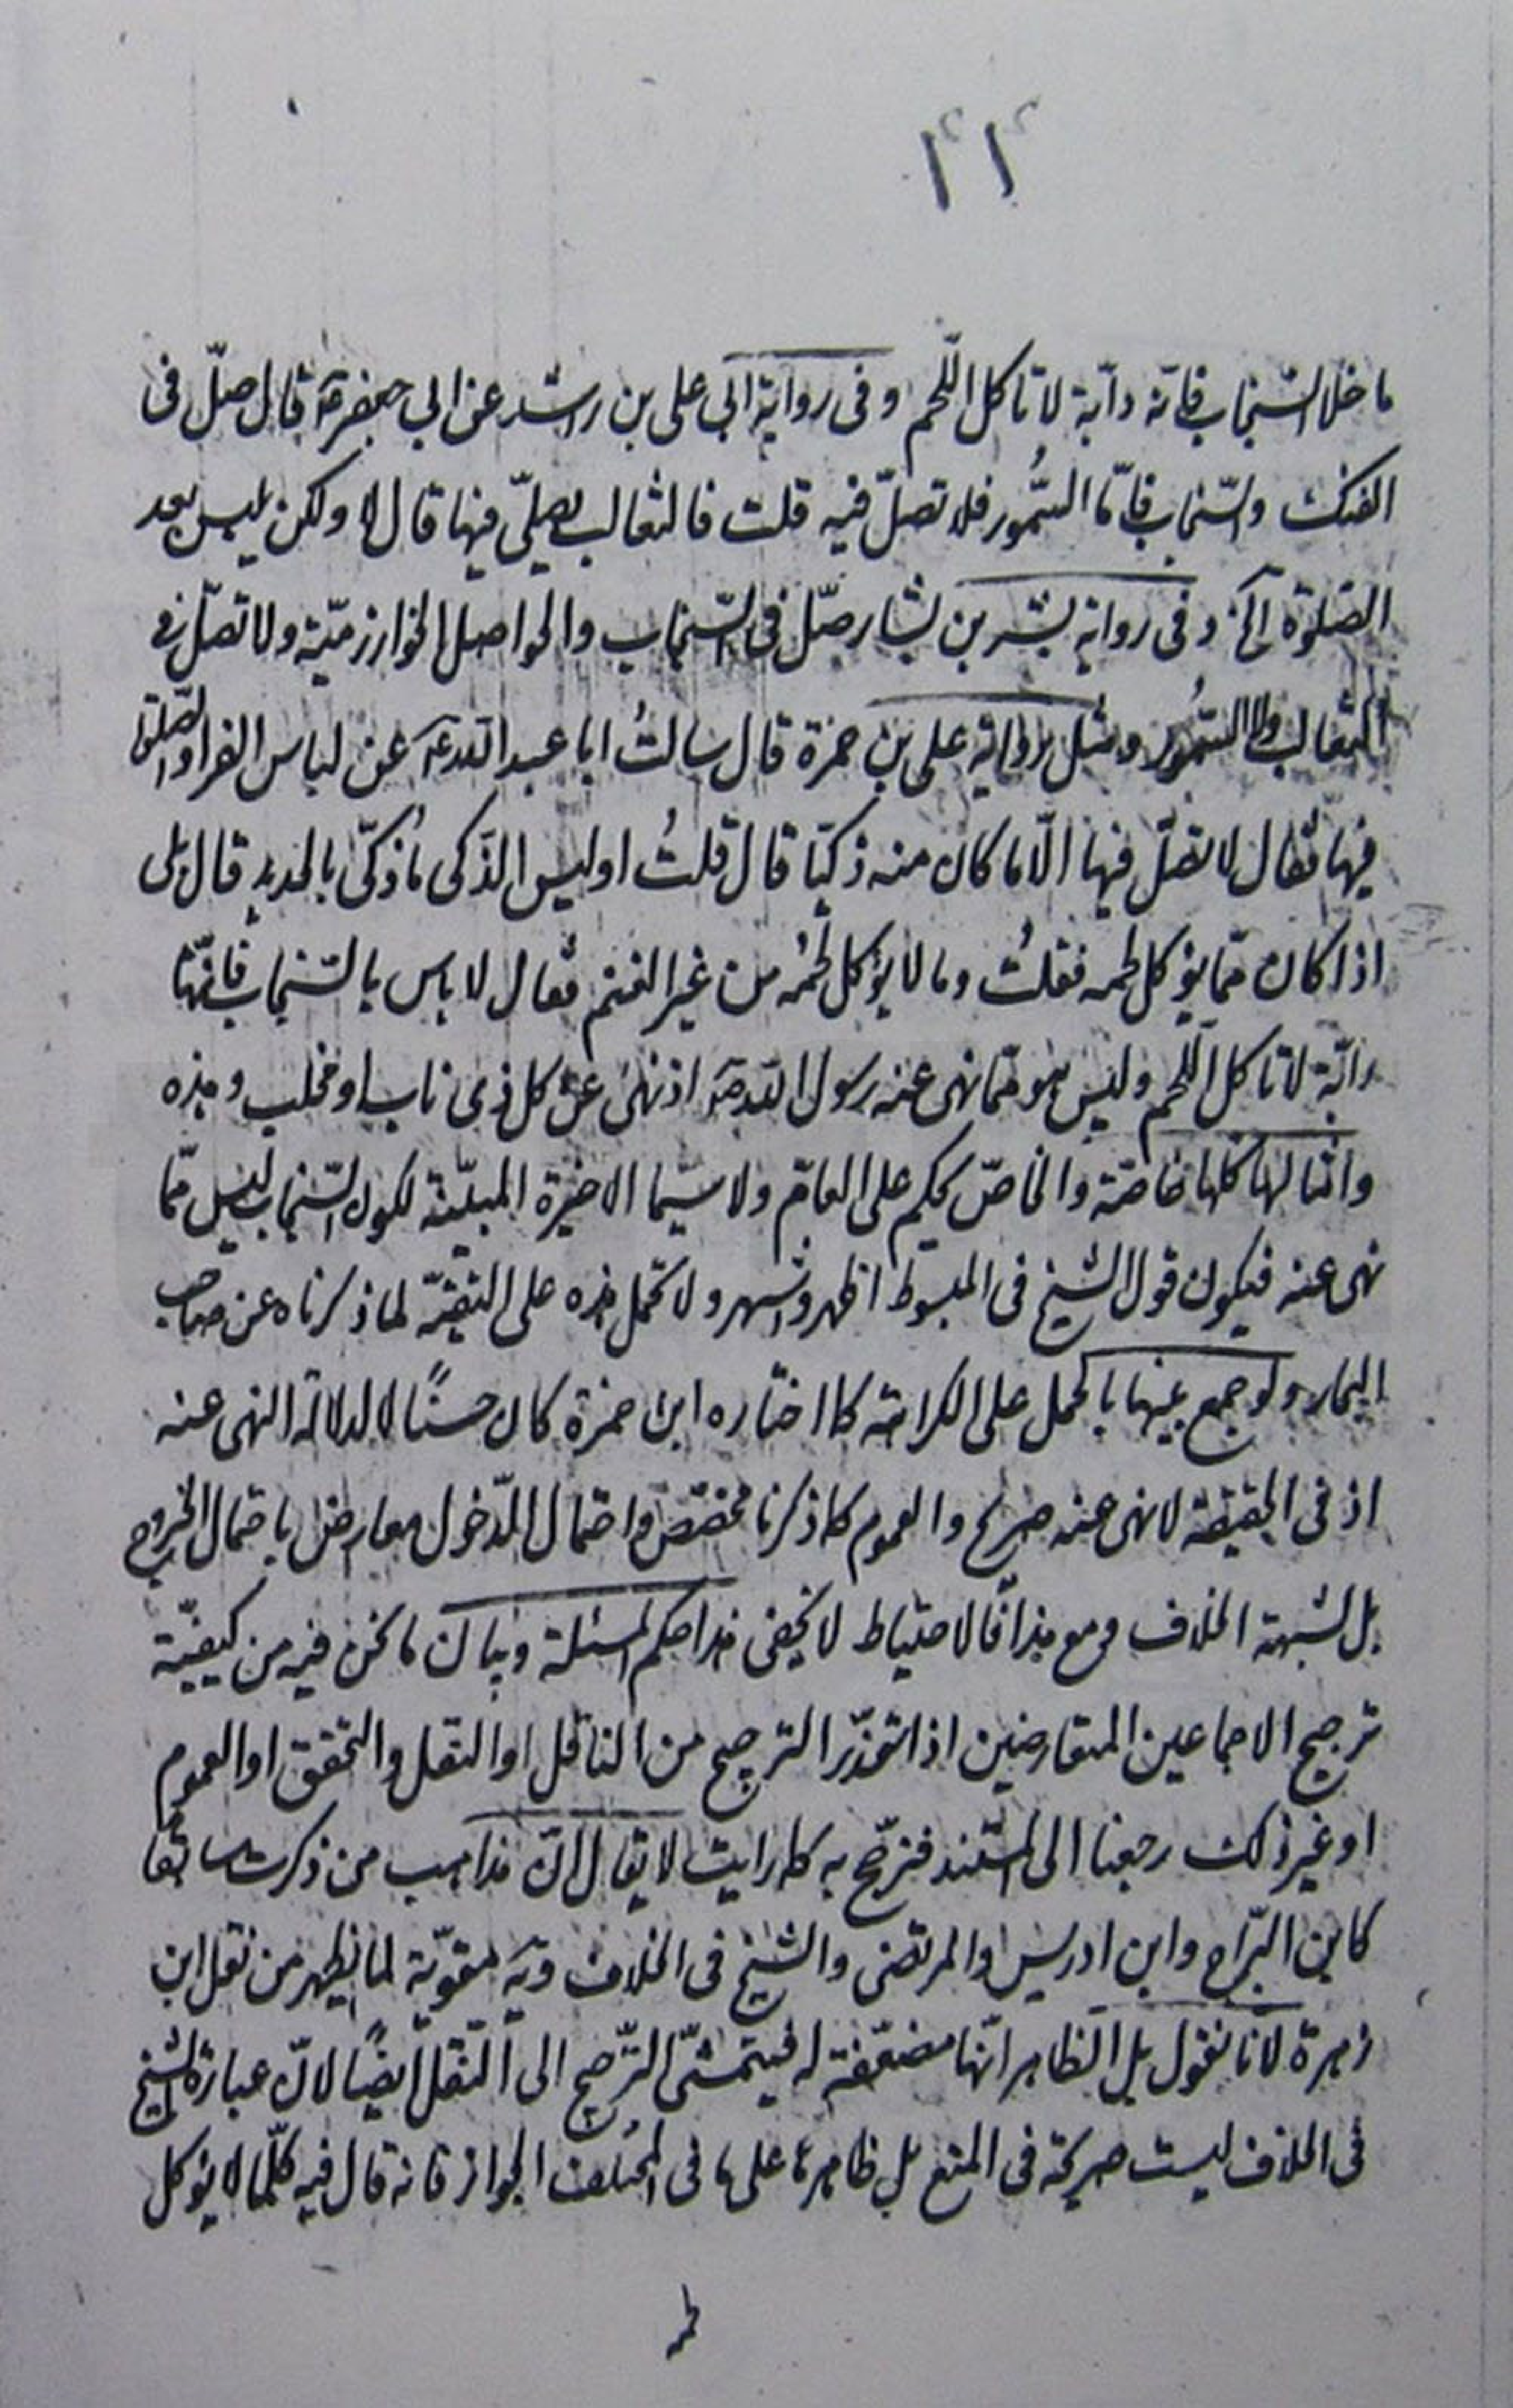 ما خلا السّنجاب فانّه دابّة لا تاكل اللّحم وفى رواية ابى على بن راشد عن ابى جعفر عۤ قال صلّ فى
الفنك والسّنجاب فامّا السّمور فلا تصلّ فيه قلت فالثعالب يصلّى فيها قال لا ولكن يلبس بعد
الصّلوة آلخ وفى رواية بشر بن بشار صلّ فى السّنجاب والحواصل الخوارزميّة ولا تصلّ فى
الثعالب ولا السّمور ومثل رواية على بن حمزة قال سالتُ ابا عبد اللّه عۤ عن لباس الفرا والصّلوة
فيها فقال لا تصلّ فيها الّا ما كان منه ذكيّا قال قلتُ اوليس الذّكى ماذكّى بالحديد قال بلى
اذا كان ممّا يؤكل لحمه فقلتُ وما لا يؤكل لحمُه من غير الغنم فقال لا باس بالسّنجاب فانّها
دابّة لا تاكل اللّحم وليس هو ممّا نهى عنه رسول اللّه صۤ اذ نهى عن كل ذى ناب او مخلب وهذه
وامثالها كلها خاصّة والخاصّ يحكم على العامّ ولا سيّما الاخيرة المبيّنة لكون السّنجاب ليس ممّا
نهى عنه فيكون قول الشيخ فى المبسوط اظهر واشهر ولا تحمل هذه على التقيّة لما ذكرناه عن صاحب
البحار ولو جمع بينها بالحمل على الكراهة كما اختاره ابن حمزة كان حسنًا لا لدلالة النهى عنه
اذ فى الحقيقة لا نهى عنه صريح والعموم كما ذكرنا مخصّص واحتمال الدّخول معارض باحتمال الخروج
بل لشبهة الخلاف ومع هذا فالاحتياط لا يخفى هذا حكم المسئلة وبيان ما نحن فيه من كيفيّة
ترجيح الاجماعين المتعارضين اذا تعذّر الترجيح من الناقل او النقل والتحقق او العموم
او غير ذلك رجعنا الى المستند فنرجّح به كما رايت لا يقال انّ مذاهب من ذكرت سابقا
كابن البرّاج وابن ادريس والمرتضى والشيخ فى الخلاف ويۤه مقوّية لما يظهر من نقل ابن
زهرة لانا نقول بل الظاهر انّها مضعّفة له فيتمشّى التّرجيح الى النّقل ايضًا لانّ عبارة الشيخ
فى الخلاف ليست صريحة فى المنع بل ظاهرها على ما فى المختلف الجواز فانه قال فيه كلّما لا يؤكل
لحمه